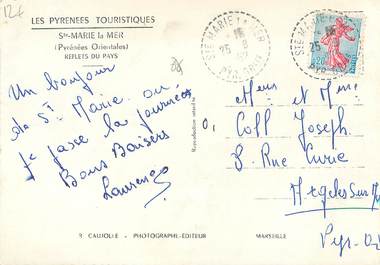 124
LES PYRENEES TOURISTIQUES
Ste-MARIE la MER
(Pyrénées Orientales)
REFLETS DU PAYS
Un bonjour
de Ste Marie ou
je passe la journée
Bons Baisers
Laurence
STE MARIE LA MER
25 - 8
PYR. ORIles
STE MARIE
25
0,20
Meur et Mme
Coll Joseph.
8. Rue Curie
Argeles sur
Pyr-Or
Reproduction interdite
R. CAUJOLLE - PHOTOGRAPHE-ÉDITEUR
MARSEILLE